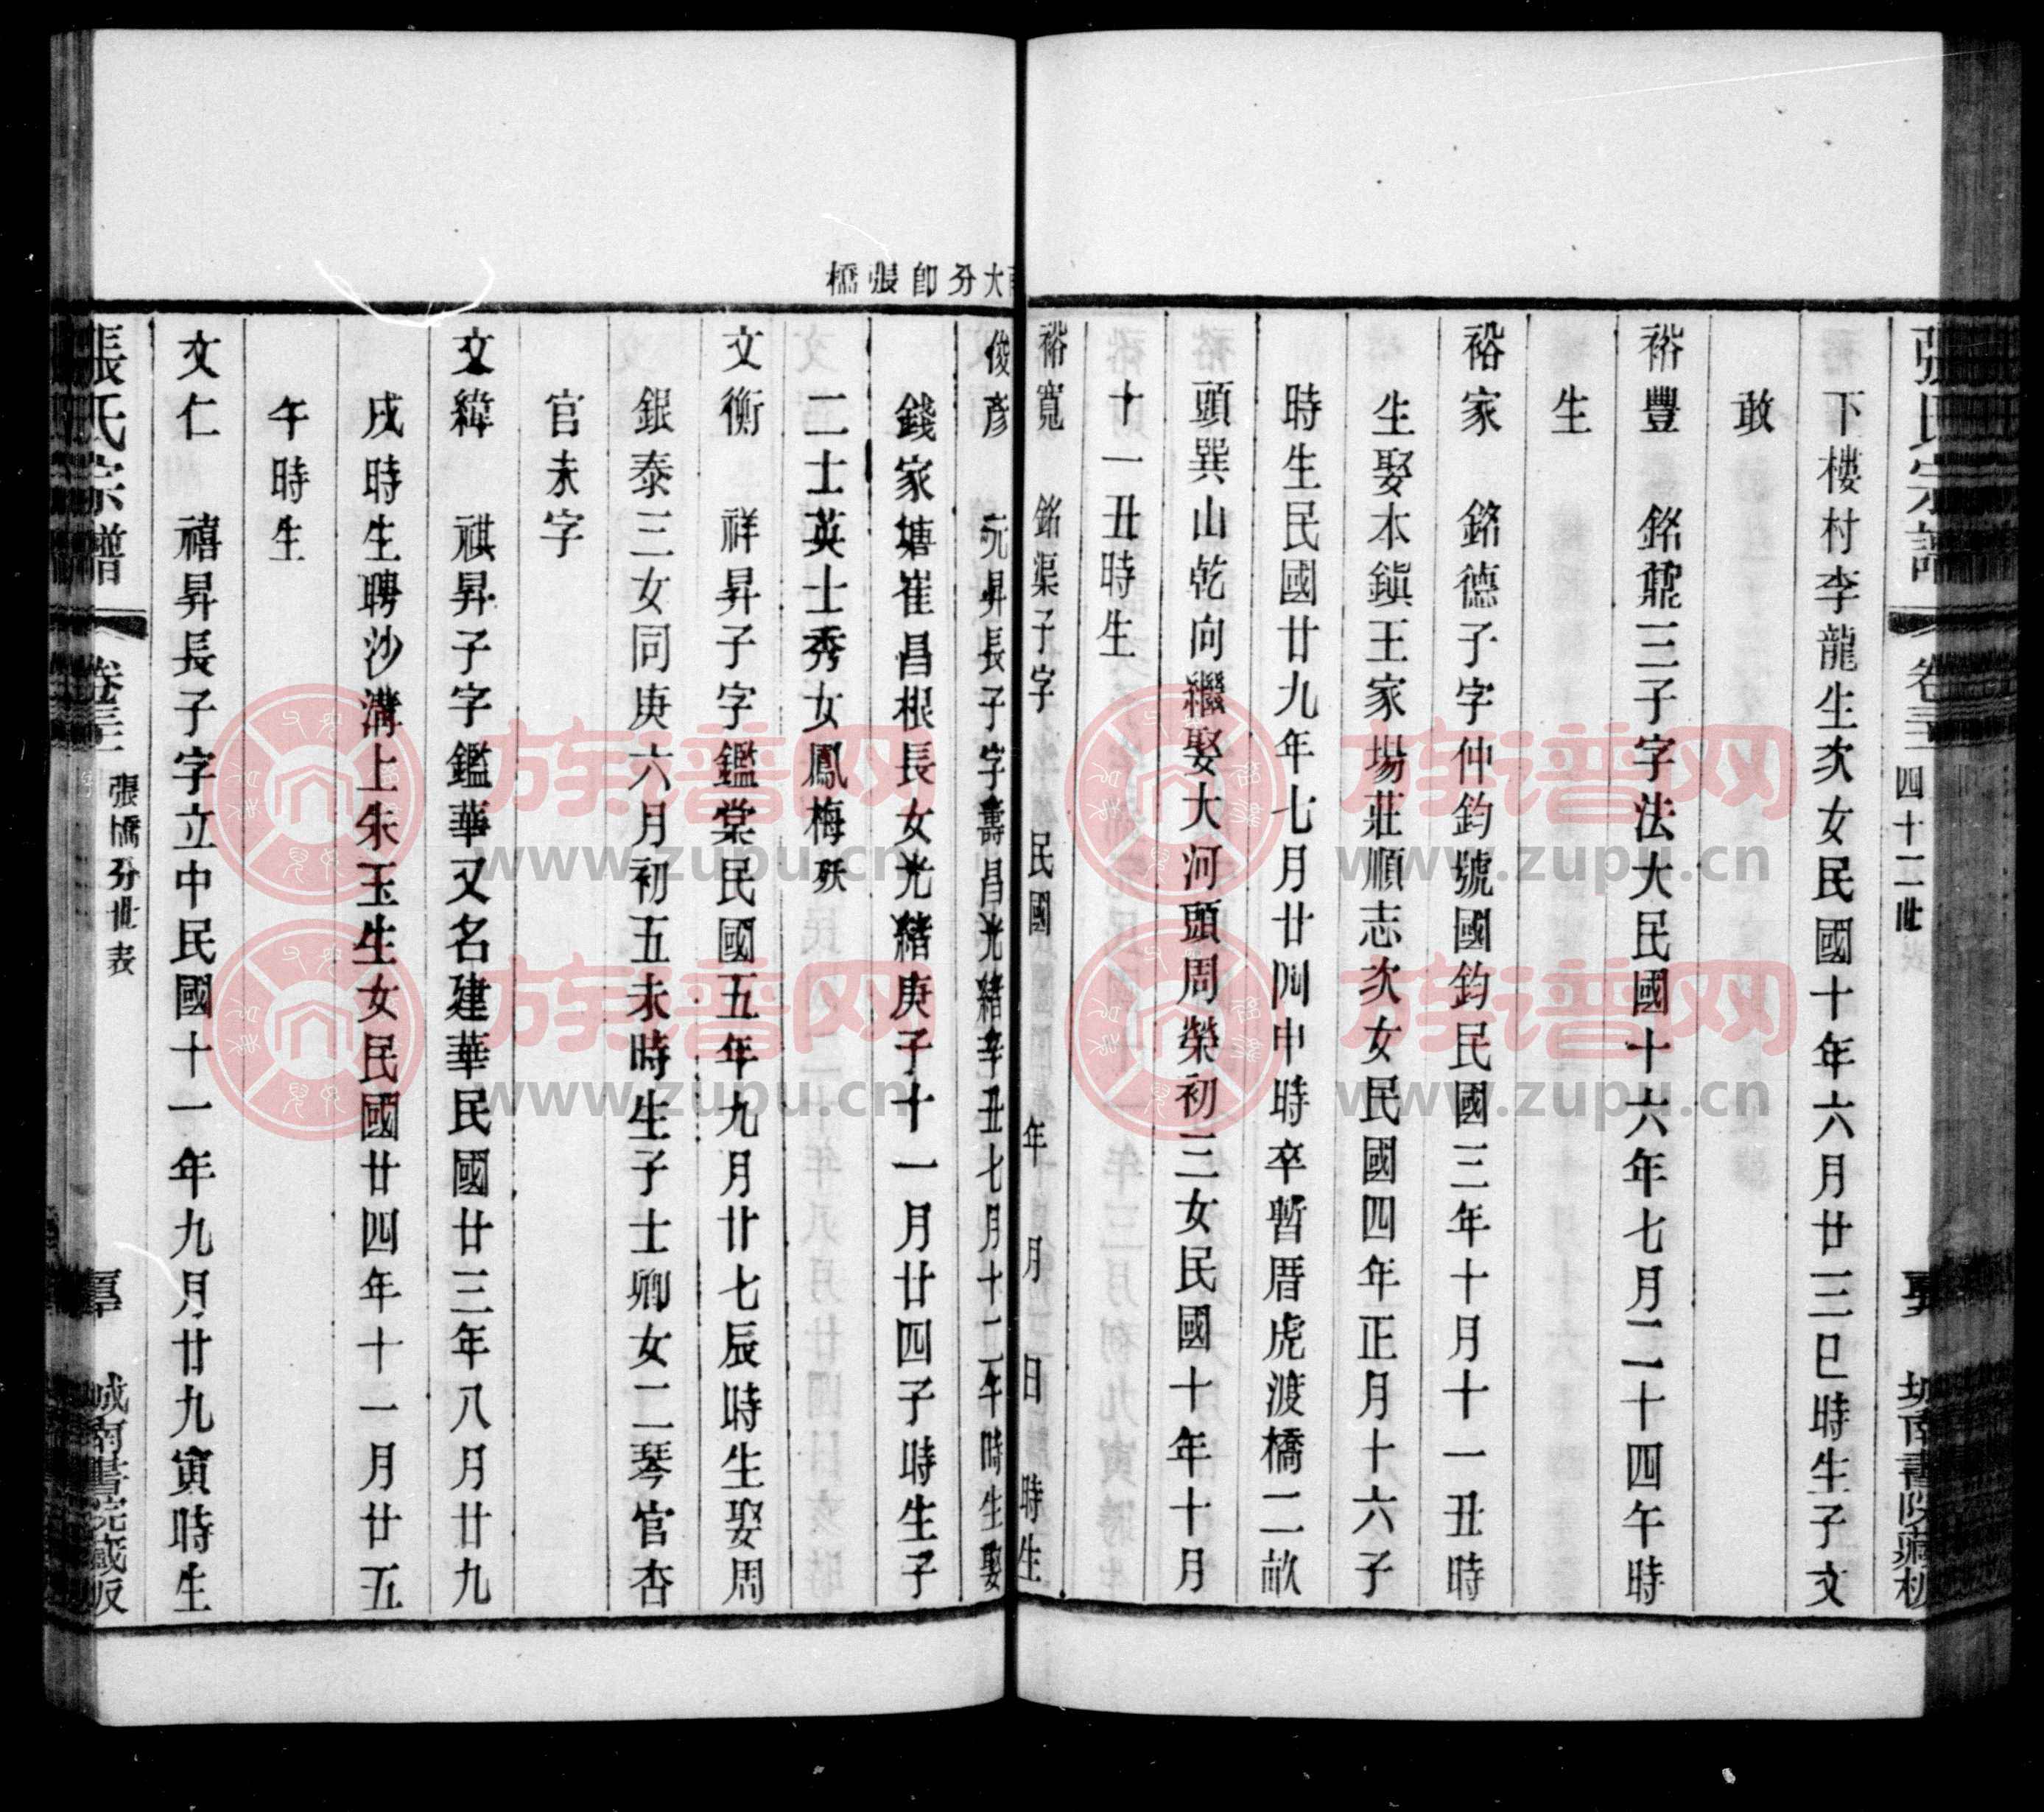 張氏宗譜 卷三 四十二世 城南書院藏板
下樓村李龍生次女民國十年六月廿三巳時生子文
敢
裕豐 銘鼐三子字法大民國十六年七月二十四午時
生
裕家 銘德子字仲鈞號國鈞民國三年十月十一丑時
生娶本鎭王家場莊順志次女民國四年正月十六子
時生民國廿九年七月廿四申時卒暫厝虎渡橋二畝
頭巽山乾向繼娶大河頭周榮初三女民國十年十月
十一丑時生
裕寬 銘渠子字 民國 年 月 日 時生
大分卽張橋
俊彥 元昇長子字壽昌光緖辛丑七月十二午時生娶
錢家塘崔昌根長女光緖庚子十一月廿四子時生子
二士英士秀女鳳梅殀
文衡 祥昇子字鑑棠民國五年九月廿七辰時生娶周
銀泰三女同庚六月初五未時生子士卿女二琴官杏
官未字
文緯 祺昇子字鑑華又名建華民國廿三年八月廿九
戌時生聘沙溝上朱玉生女民國廿四年十一月廿五
午時生
文仁 禧昇長子字立中民國十一年九月廿九寅時生
張氏宗譜 卷三 張橋分世表 城南書院藏板
族谱网
www.zupu.cn
族谱网
www.zupu.cn
族谱网
www.zupu.cn
族谱网
www.zupu.cn